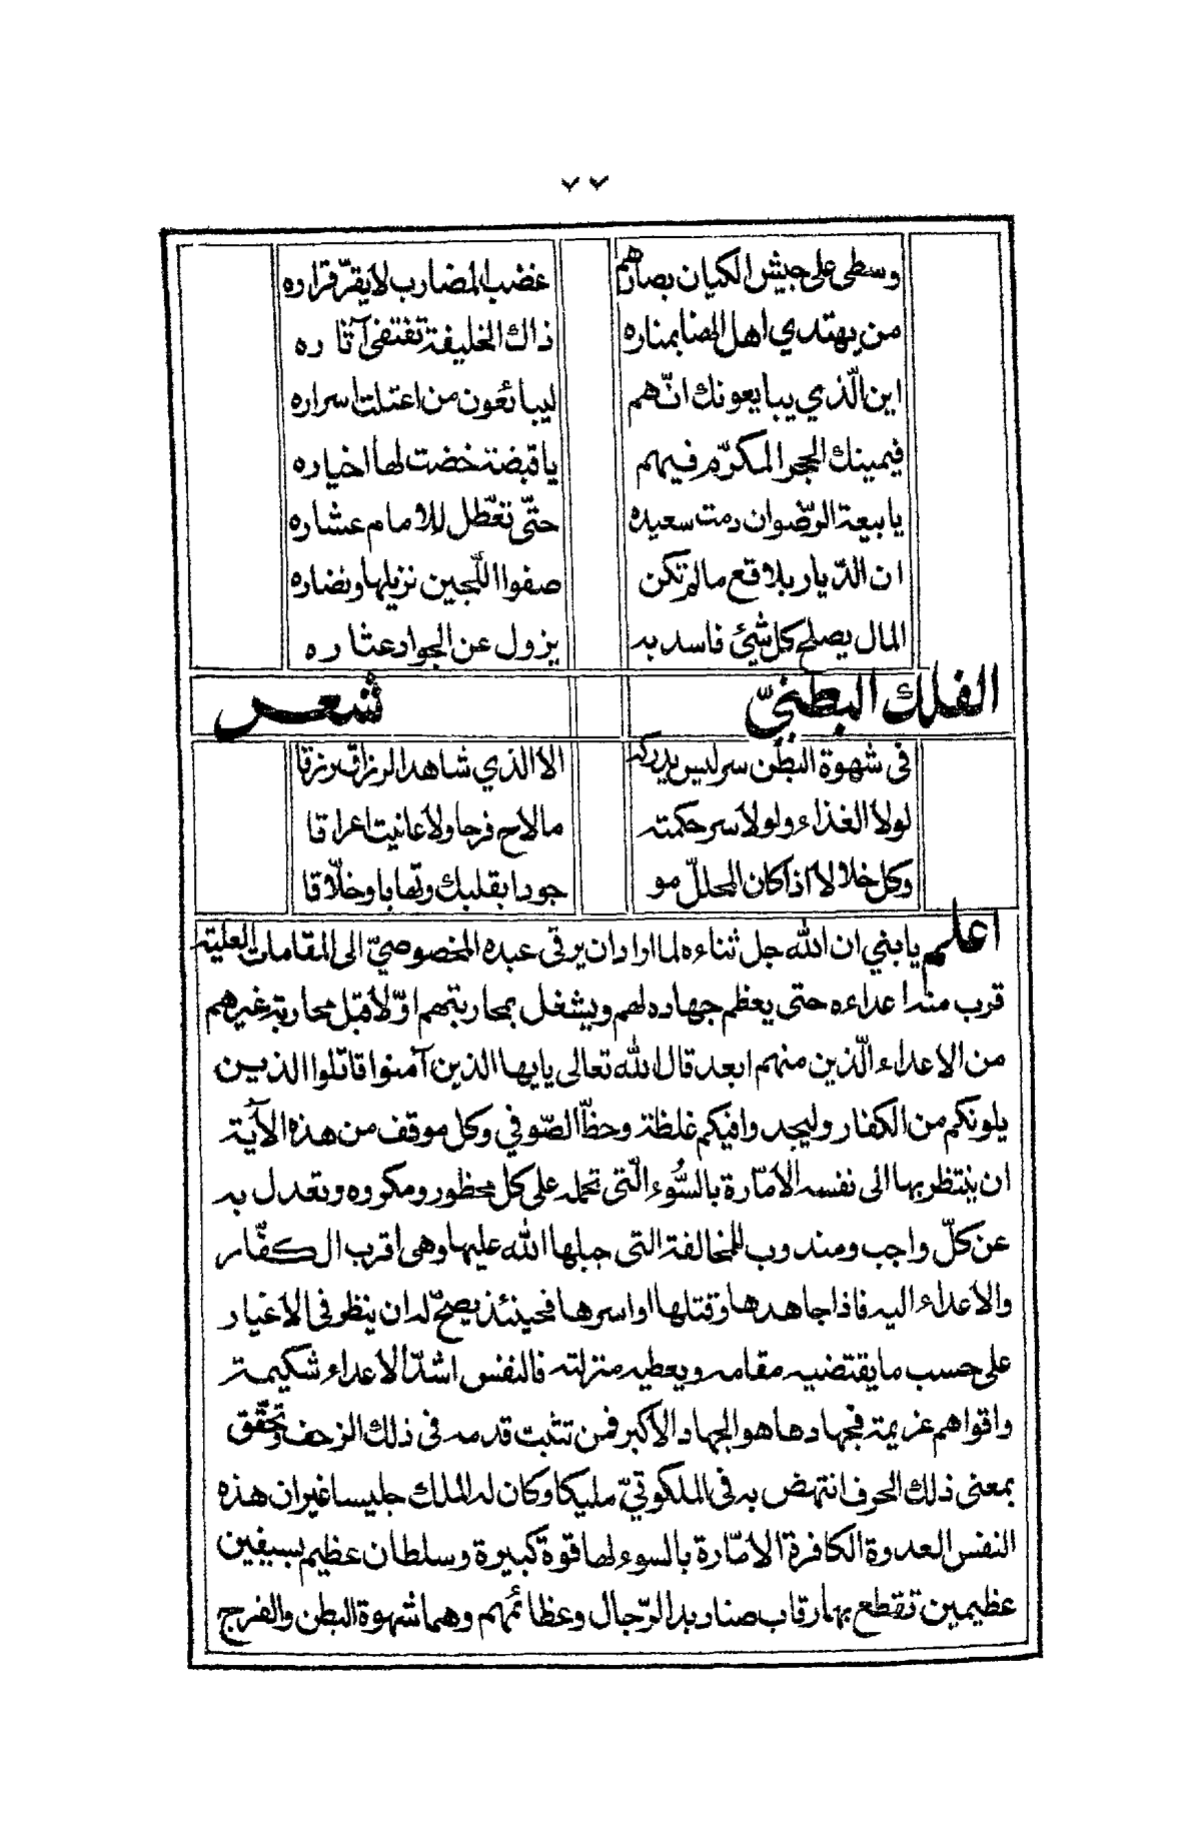 ٧٧
وسطى على جيش الكيان بصارهم غضب المضارب لا يقرّ قراره
من يهتدي اهل النهى بمناره ذاك الخليفة تقتفى آثاره
اين الّذي يبايعونك انّهم ليبائعون من اعتلت اسراره
فيمينك الحجر المكرّم فيهم يا قبضة خضعت لها اخياره
يا بيعة الرضوان دمت سعيده حتّى تعطّل للامام عشاره
ان الديار بلاقع ما لم تكن صفوا اللّجين نزيلها ونضاره
المال يصلح كل شيئ فاسد به يزول عن الجواد عثاره
الفلك البطنيّ شعر
فى شهوة البطن سر ليس يدركه الا الذي شاهد الرزاق رزقا
لولا الغذاء ولولا سر حكمته ما لاح فرجا ولا عانيت اعراقا
وكل خلالا اذا كان المحلل مو جودا بقلبك وتهابا وخلّاقا
اعلم يا بني ان الله جل ثناءه لما اراد ان يرقى عبده الخصوصيّ الى المقامات العلية
قرب منه اعداءه حتى يعظم جهاده لهم ويشغل بمحاربتهم اوّلا قبل محاربة غيرهم
من الاعداء الّذين منهم ابعد قال الله تعالى يا ايها الذين آمنوا قاتلوا الذين
يلونكم من الكفار وليجدوا فيكم غلظة وحظّ الصّوفي وكل موقف من هذه الآية
ان ينتظر بها الى نفسه الامّارة بالسُّوء الّتى تحمله على كل محظور ومكروه وتعدل به
عن كلّ واجب ومندوب للمخالفة التى جبلها الله عليها وهى اقرب الكفّار
والاعداء اليه فاذا جاهدها وقتلها او اسرها فحينئذ يصحّ له ان ينظر فى الاغيار
على حسب ما يقتضيه مقامه ويعطيه منزلته فالنفس اشدّ الاعداء شكيمة
واقواهم عزيمة فجهادها هو الجهاد الاكبر فمن تثبت قدمه فى ذلك الزحف وتحقّق
بمعنى ذلك الحرف انتهض به فى الملكوتيّ مليكا وكان له الملك جليسا غير ان هذه
النفس العدوة الكافرة الامّارة بالسوء لها قوة كبيرة وسلطان عظيم بسيفين
عظيمين تقطع بها رقاب صناديد الرّجال وعظائمهم وهما شهوة البطن والفرج